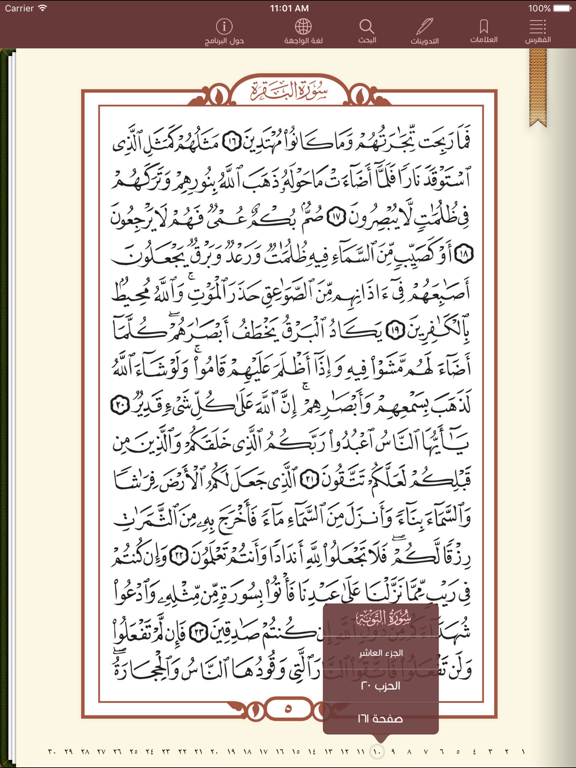 Carrier 11:01 AM 100%
الفهرس العلامات التدوينات البحث لغة الواجهة حول البرنامج
سُورَةُ البَقَرَة
فَمَا رَبِحَت تِّجَٰرَتُهُمْ وَمَا كَانُوا۟ مُهْتَدِينَ ١٦ مَثَلُهُمْ كَمَثَلِ ٱلَّذِى
ٱسْتَوْقَدَ نَارًا فَلَمَّآ أَضَآءَتْ مَا حَوْلَهُۥ ذَهَبَ ٱللَّهُ بِنُورِهِمْ وَتَرَكَهُمْ
فِى ظُلُمَٰتٍ لَّا يُبْصِرُونَ ١٧ صُمٌّۢ بُكْمٌ عُمْىٌ فَهُمْ لَا يَرْجِعُونَ
١٨ أَوْ كَصَيِّبٍ مِّنَ ٱلسَّمَآءِ فِيهِ ظُلُمَٰتٌ وَرَعْدٌ وَبَرْقٌ يَجْعَلُونَ
أَصَٰبِعَهُمْ فِىٓ ءَاذَانِهِم مِّنَ ٱلصَّوَٰعِقِ حَذَرَ ٱلْمَوْتِ ۚ وَٱللَّهُ مُحِيطٌۢ
بِٱلْكَٰفِرِينَ ١٩ يَكَادُ ٱلْبَرْقُ يَخْطَفُ أَبْصَٰرَهُمْ ۖ كُلَّمَآ
أَضَآءَ لَهُم مَّشَوْا۟ فِيهِ وَإِذَآ أَظْلَمَ عَلَيْهِمْ قَامُوا۟ ۚ وَلَوْ شَآءَ ٱللَّهُ
لَذَهَبَ بِسَمْعِهِمْ وَأَبْصَٰرِهِمْ ۚ إِنَّ ٱللَّهَ عَلَىٰ كُلِّ شَىْءٍ قَدِيرٌ ٢٠
يَٰٓأَيُّهَا ٱلنَّاسُ ٱعْبُدُوا۟ رَبَّكُمُ ٱلَّذِى خَلَقَكُمْ وَٱلَّذِينَ مِن
قَبْلِكُمْ لَعَلَّكُمْ تَتَّقُونَ ٢١ ٱلَّذِى جَعَلَ لَكُمُ ٱلْأَرْضَ فِرَٰشًا
وَٱلسَّمَآءَ بِنَآءً وَأَنزَلَ مِنَ ٱلسَّمَآءِ مَآءً فَأَخْرَجَ بِهِۦ مِنَ ٱلثَّمَرَٰتِ
رِزْقًا لَّكُمْ ۖ فَلَا تَجْعَلُوا۟ لِلَّهِ أَندَادًا وَأَنتُمْ تَعْلَمُونَ ٢٢ وَإِن كُنتُمْ
فِى رَيْبٍ مِّمَّا نَزَّلْنَا عَلَىٰ عَبْدِنَا فَأْتُوا۟ بِسُورَةٍ مِّن مِّثْلِهِۦ وَٱدْعُوا۟
كُنتُمْ صَٰدِقِينَ ٢٣ فَإِن لَّمْ تَفْعَلُوا۟
وَلَن تَفْعَلُوا۟ فَٱتَّقُوا۟ ٱلنَّارَ ٱلَّتِى وَقُودُهَا ٱلنَّاسُ وَٱلْحِجَارَةُ ۖ
٥
سُورَةُ التَّوْبَة
الجزء العاشر
الحزب ٢٠
صفحة ١٦١
١ ٢ ٣ ٤ ٥ ٦ ٧ ٨ ٩ ١٠ ١١ ١٢ ١٣ ١٤ ١٥ ١٦ ١٧ ١٨ ١٩ ٢٠ ٢١ ٢٢ ٢٣ ٢٤ ٢٥ ٢٦ ٢٧ ٢٨ ٢٩ ٣٠